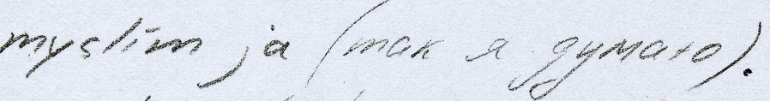 myslím ja (так я думаю).